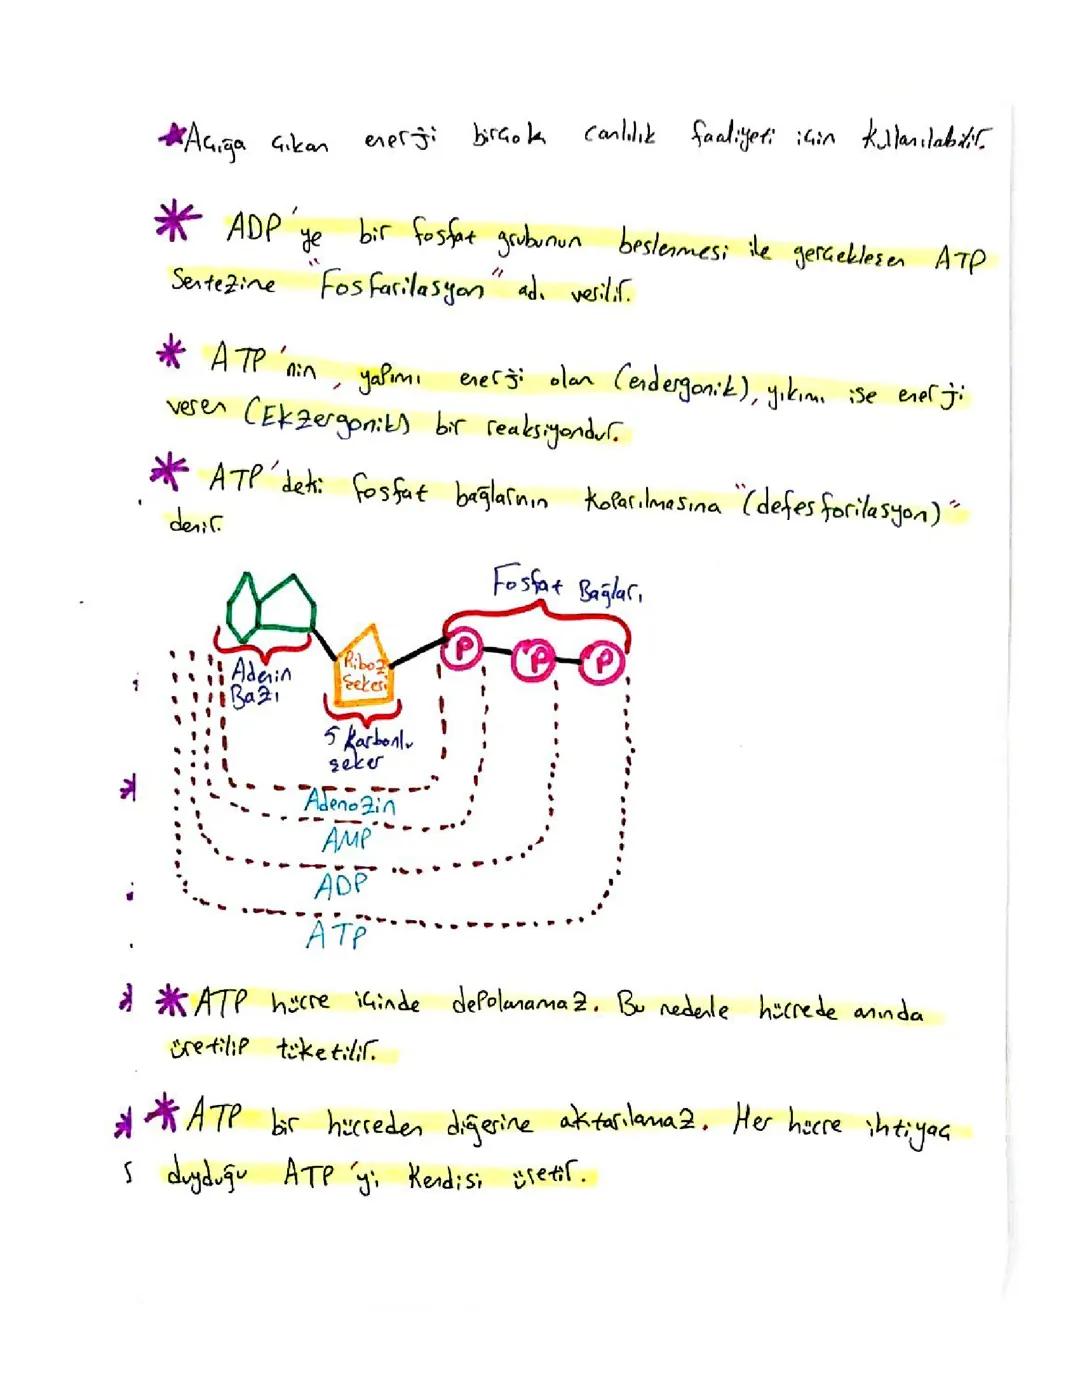 Açığa çıkan enerji birçok canlılık faaliyeti için kullanılabilir.
ADP'ye bir fosfat grubunun beslenmesi ile gerçekleşen ATP
Sentezine "Fosfarilasyon" adı verilir.
ATP'nin, yapımı enerji olan (endergonik), yıkımı ise enerji
veren (Ekzergonik) bir reaksiyondur.
ATP'deki fosfat bağlarının koparılmasına "(defesforilasyon)"
denir.
Fosfat Bağları
P P P
Adenin
Bazı
Riboz
Şekeri
5 Karbonlu
şeker
Adenozin
AMP
ADP
ATP
ATP hücre içinde depolanamaz. Bu nedenle hücrede anında
üretilip tüketilir.
ATP bir hücreden diğerine aktarılamaz. Her hücre ihtiyaç
duyduğu ATP'yi Kendisi üretir.